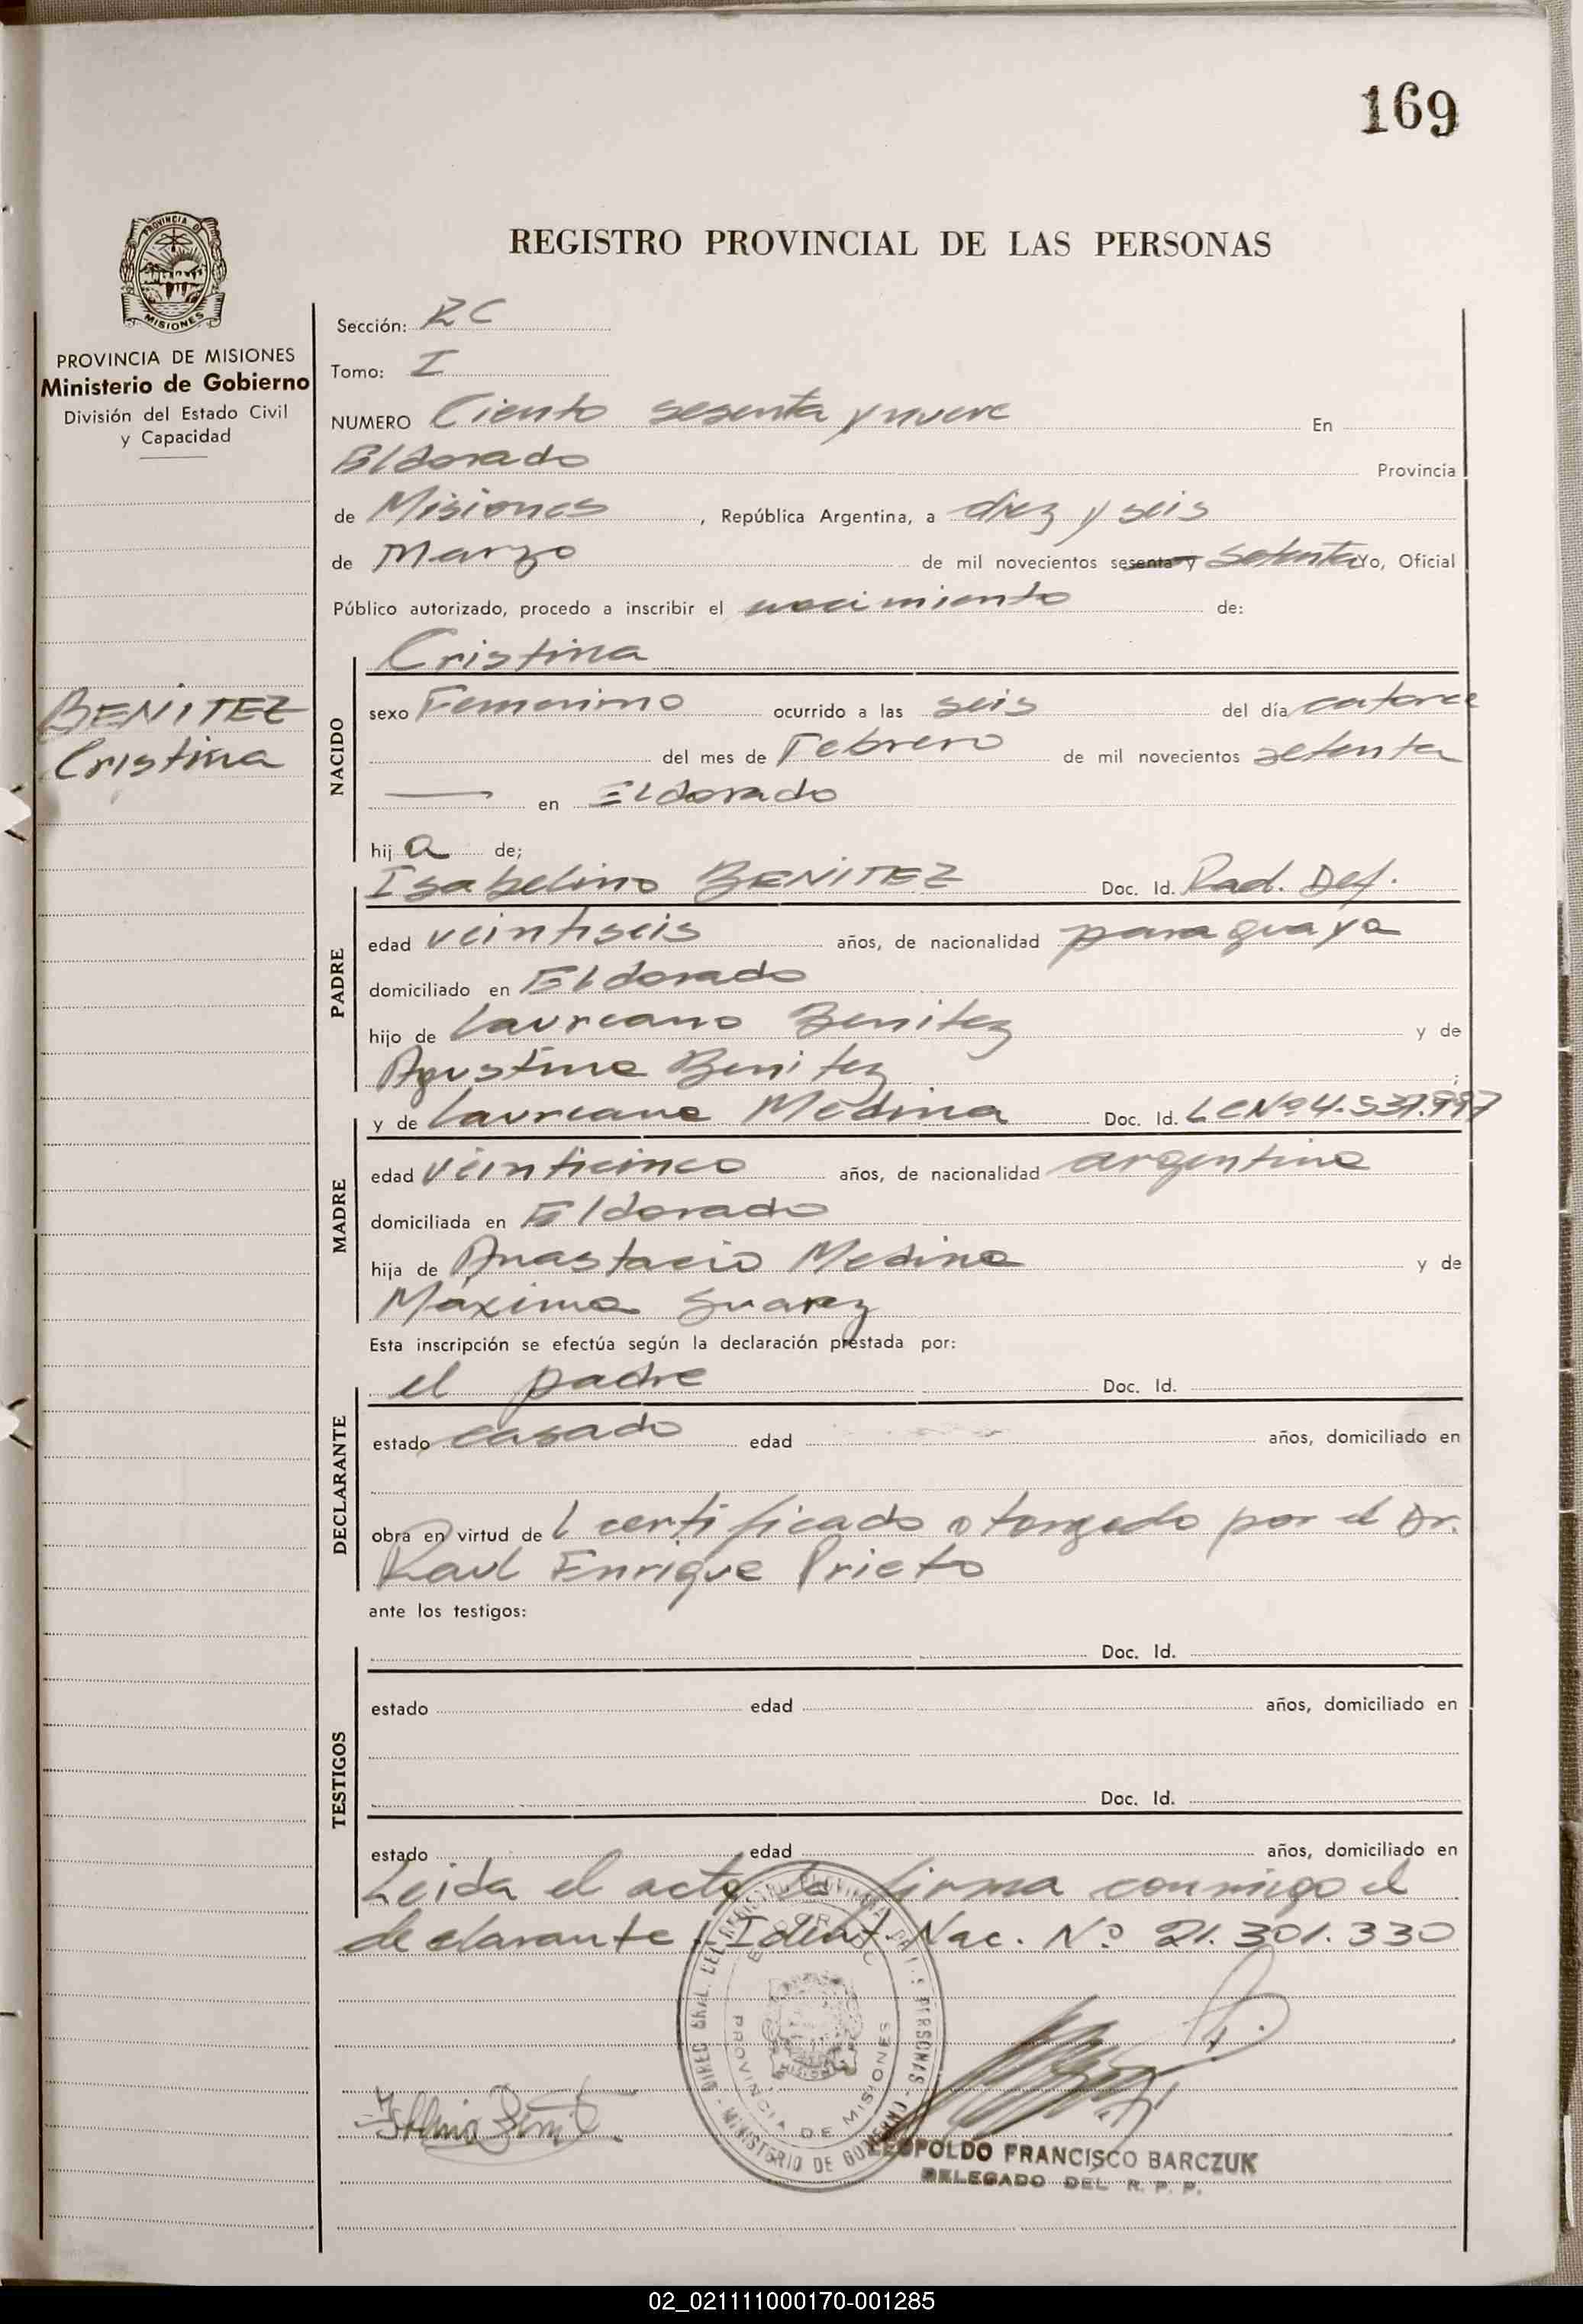 169
PROVINCIA DE MISIONES
Ministerio de Gobierno
División del Estado Civil
y Capacidad
BENITEZ
Cristina
REGISTRO PROVINCIAL DE LAS PERSONAS
Sección: RC
Tomo: I
NUMERO Ciento sesenta y nueve En
Eldorado Provincia
de Misiones, República Argentina, a diez y seis
de Marzo de mil novecientos sesenta y setenta Yo, Oficial
Público autorizado, procedo a inscribir el nacimiento de:
NACIDO
Cristina
sexo Femenino ocurrido a las seis del día catorce
del mes de Febrero de mil novecientos setenta
— en Eldorado
hija de;
PADRE
Isabelino BENITEZ Doc. Id. Rad. Def.
edad veintiseis años, de nacionalidad paraguaya
domiciliado en Eldorado
hijo de Laureano Benitez y de
Agustina Benitez;
MADRE
y de Laureana Medina Doc. Id. LC Nº 4.531.997
edad veinticinco años, de nacionalidad argentina
domiciliada en Eldorado
hija de Anastacio Medina y de
Máxima Suarez
Esta inscripción se efectúa según la declaración prestada por:
DECLARANTE
el padre Doc. Id.
estado casado edad años, domiciliado en
obra en virtud de l certificado otorgado por el Dr.
Raul Enrique Prieto
ante los testigos:
TESTIGOS
Doc. Id.
estado edad años, domiciliado en
Doc. Id.
estado edad años, domiciliado en
Leida el acta la firma conmigo el
declarante. Ident. Nac. Nº 21.301.330
PROVINCIA DE MISIONES
MINISTERIO DE GOBIERNO
LEOPOLDO FRANCISCO BARCZUK
DELEGADO DEL R. P. P.
02_021111000170-001285